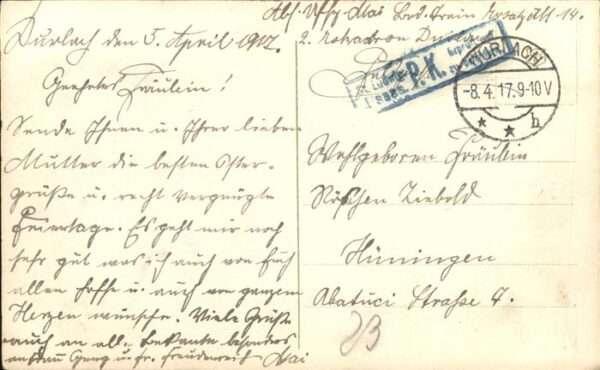 Abs. Uffz. Mai Bad. Train Ersatz Abt. 14.
2. Eskadron Durlach
Durlach den 5. April 1917.
Geehrtes Fräulein!
Sende Ihnen u. Ihrer lieben
Mutter die besten Oster-
grüße u. recht vergnügte
Feiertage. Es geht mir noch
sehr gut was ich auch von Euch
allen hoffe u. auch von ganzem
Herzen wünsche. Viele Grüße
auch an all. Bekannte besonders
Mai
P. K.
DURLACH
-8.4.17.9-10V
* * h
Wohlgeboren Fräulein
Röschen Ziebold
Hüningen
Abatuci Straße 7.